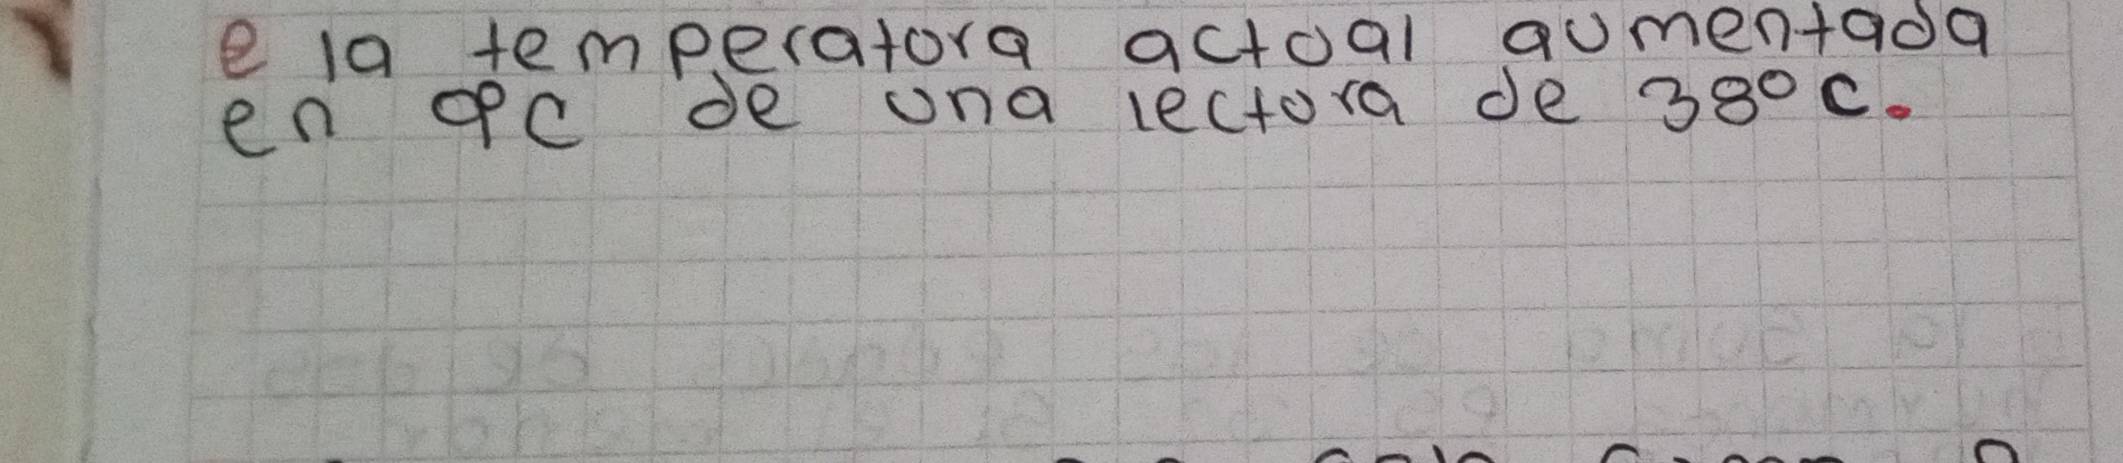 e la temperatora actoal aumentada
en 9°C de una lectora de 38°C.